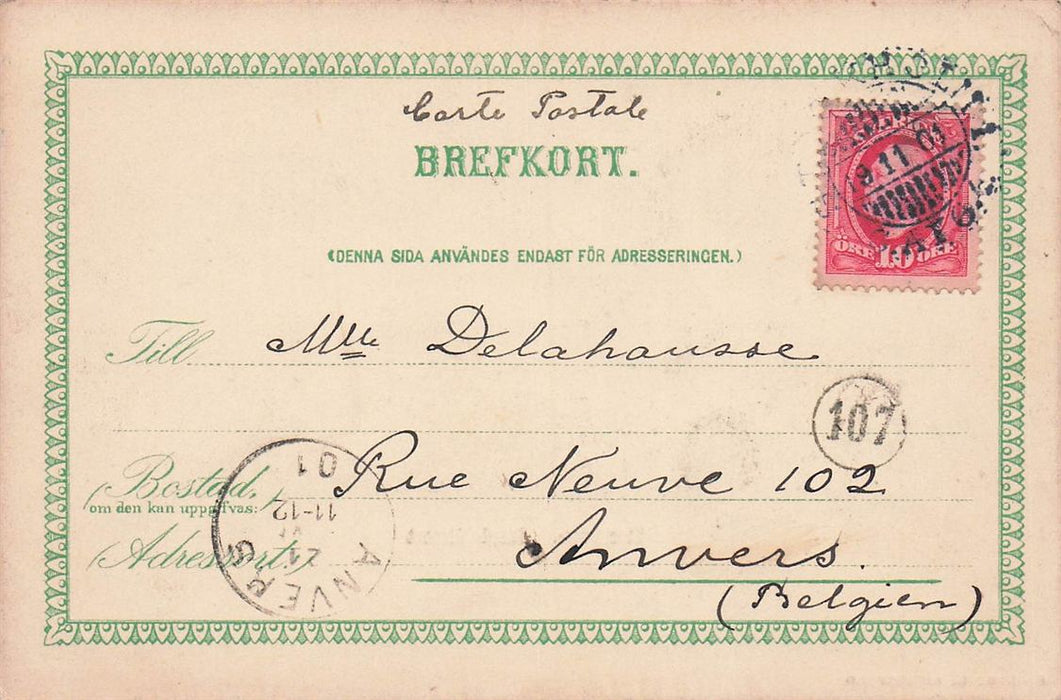 Carte Postale
BREFKORT.
(DENNA SIDA ANVÄNDES ENDAST FÖR ADRESSERINGEN.)
9 11 01
ÖRE 10 ÖRE
Till Mlle Delahausse
107
(Bostad, Rue Neuve 102
om den kan uppgifvas:)
(Adressort:) Anvers.
(Belgien)
ANVERS
11-12
01